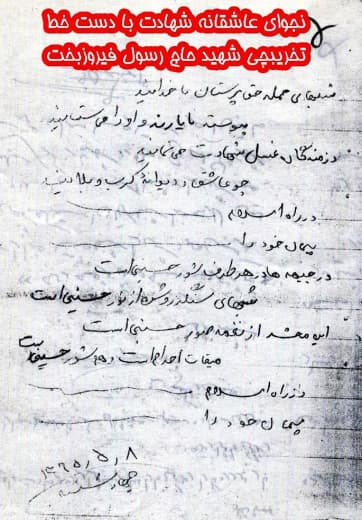 نجوای عاشقانه شهادت با دست خط
تخریبچی شهید حاج رسول فیروزبخت
شبهای حمله حق پرستان با خدایند
پیوسته با یارند و او را می ستایند
رزمندگان غسل شهادت می نمایند
چو عاشق و دیوانه کرب و بلایند
در راه اسلام
پیمان خود را
در جبهه ها در هر طرف شور حسینی است
شبهای سنگر روشن از نور حسینی است
این از نغمه حسینی است
میقات احرام است و شور حسینی است
در راه اسلام
پیمان خود را
۱۳۶۵٫۵٫۸